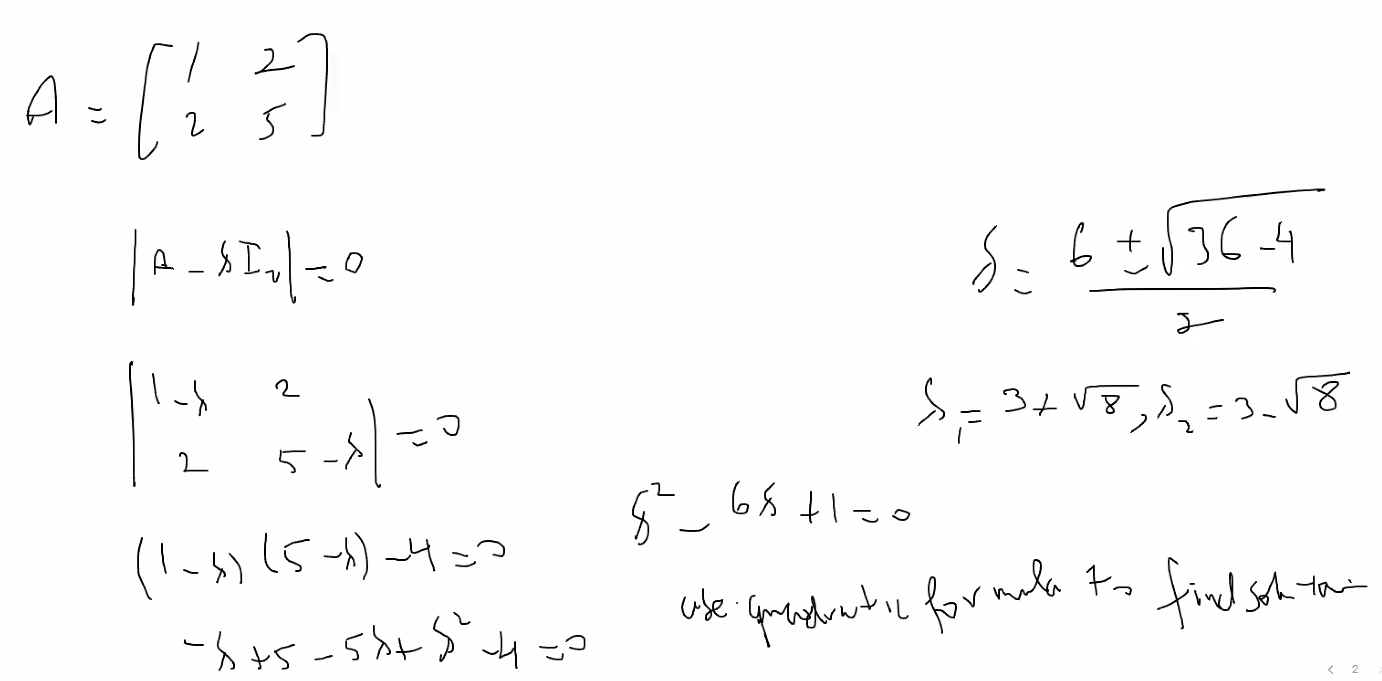 A = [1 2
2 5]
|A - λI₂| = 0
|1-λ 2
2 5-λ| = 0
(1-λ)(5-λ) - 4 = 0
-λ + 5 - 5λ + λ² - 4 = 0
λ² - 6λ + 1 = 0
use quadratic formula to find solution
λ = (6 ± √(36-4))/2
λ₁ = 3 + √8, λ₂ = 3 - √8
< 2